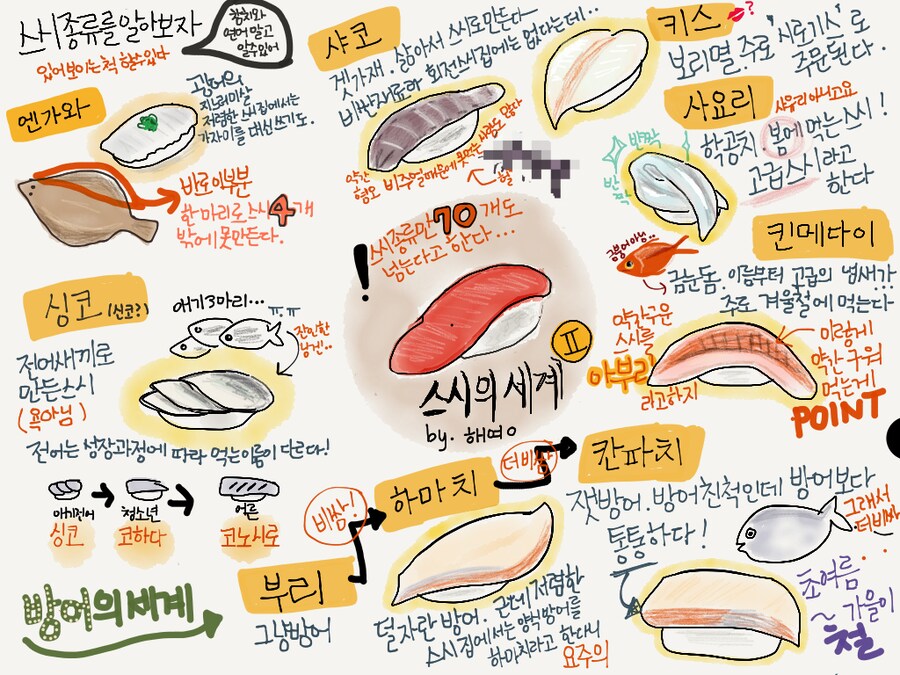 스시종류를 알아보자
있어보이는 척 할수있다
참치와
연어 말고
알수있어
엔가와
광어의
지느러미살
저렴한 스시집에서는
가자미를 대신 쓰기도.
바로 이부분
한마리로 스시 4개
밖에 못만든다.
샤코
갯가재. 삶아서 스시로 만든다
비싼재료라 회전스시집에는 없다는데..
약간
혐오 비주얼때문에 못먹는 사람도 많다
헐
키스 ?
보리멸. 주로 '시로기스'로
주문된다.
사요리
사유리 아니고요
학공치. 봄에 먹는 스시!
고급스시라고
한다
반짝
반짝
킨메다이
금붕어아님..
금눈돔. 이름부터 고급의 냄새가
주로 겨울철에 먹는다
약간 구운
스시를
아부리
라고하지
이렇게
약간 구워
먹는게
POINT
! 스시종류만 70개도
넘는다고 한다...
스시의 세계 II
by. 해여o
싱코 (신코?)
애기3마리... ㅠㅠ
잔인한
닝겐..
전어새끼로
만든스시
(욕아님)
전어는 성장과정에 따라 먹는 이름이 다르다!
애기전어
싱코
청소년
코하다
어른
코노시로
방어의 세계
부리
그냥방어
비쌈!
하마치
덜자란 방어. 근데 저렴한
스시집에서는 양식방어를
하마치라고 한다니
요주의
더비쌈
칸파치
잿방어. 방어친척인데 방어보다
통통하다!
그래서
더비싸..
초여름
~ 가을이
철